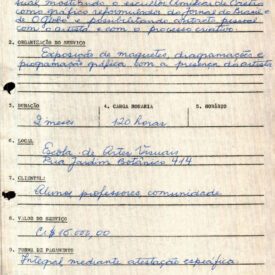 sual mostrando o escultor Amilcar de Castro
como gráfico reformista do Jornal do Brasil e
de O Globo e possibilitando contato pessoal
com o artista e com o processo criativo.
2. ORGANIZAÇÃO DO SERVIÇO
Exposição de maquetes, diagramação e
programação gráfica com a presença do artista
3. DURAÇÃO 4. CARGA HORARIA 5. HORÁRIO
2 meses 120 horas
6. LOCAL
Escola de Artes Visuais
Rua Jardim Botânico 414
7. CLIENTELA:
Alunos professores comunidade
8. VALOR DO SERVIÇO
Cr$ 15.000,00
9. FORMA DE PAGAMENTO
Integral mediante atestação específica